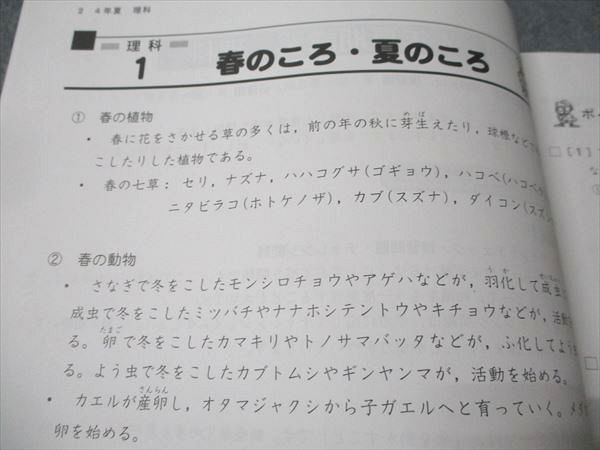 2 4年夏 理科
理科
1 春のころ・夏のころ
① 春の植物
・ 春に花をさかせる草の多くは，前の年の秋に芽生えたり，球根など
めば
こしたりした植物である。
・ 春の七草： セリ，ナズナ，ハハコグサ(ゴギョウ)，ハコベ(ハコベ
ニタビラコ(ホトケノザ)，カブ(スズナ)，ダイコン(スズ
② 春の動物
・ さなぎで冬をこしたモンシロチョウやアゲハなどが，羽化して成虫
うか
成虫で冬をこしたミツバチやナナホシテントウやキチョウなどが，活
たまご
る。卵で冬をこしたカマキリやトノサマバッタなどが，ふ化してよう
る。よう虫で冬をこしたカブトムシやギンヤンマが，活動を始める。
さんらん
・ カエルが産卵し，オタマジャクシから子ガエルへと育っていく。メダ
卵を始める。
ポ
□ [1]
な